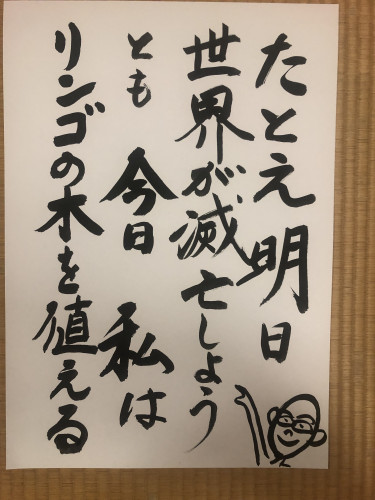 たとえ明日
世界が滅亡しよう
とも 今日 私は
リンゴの木を植える